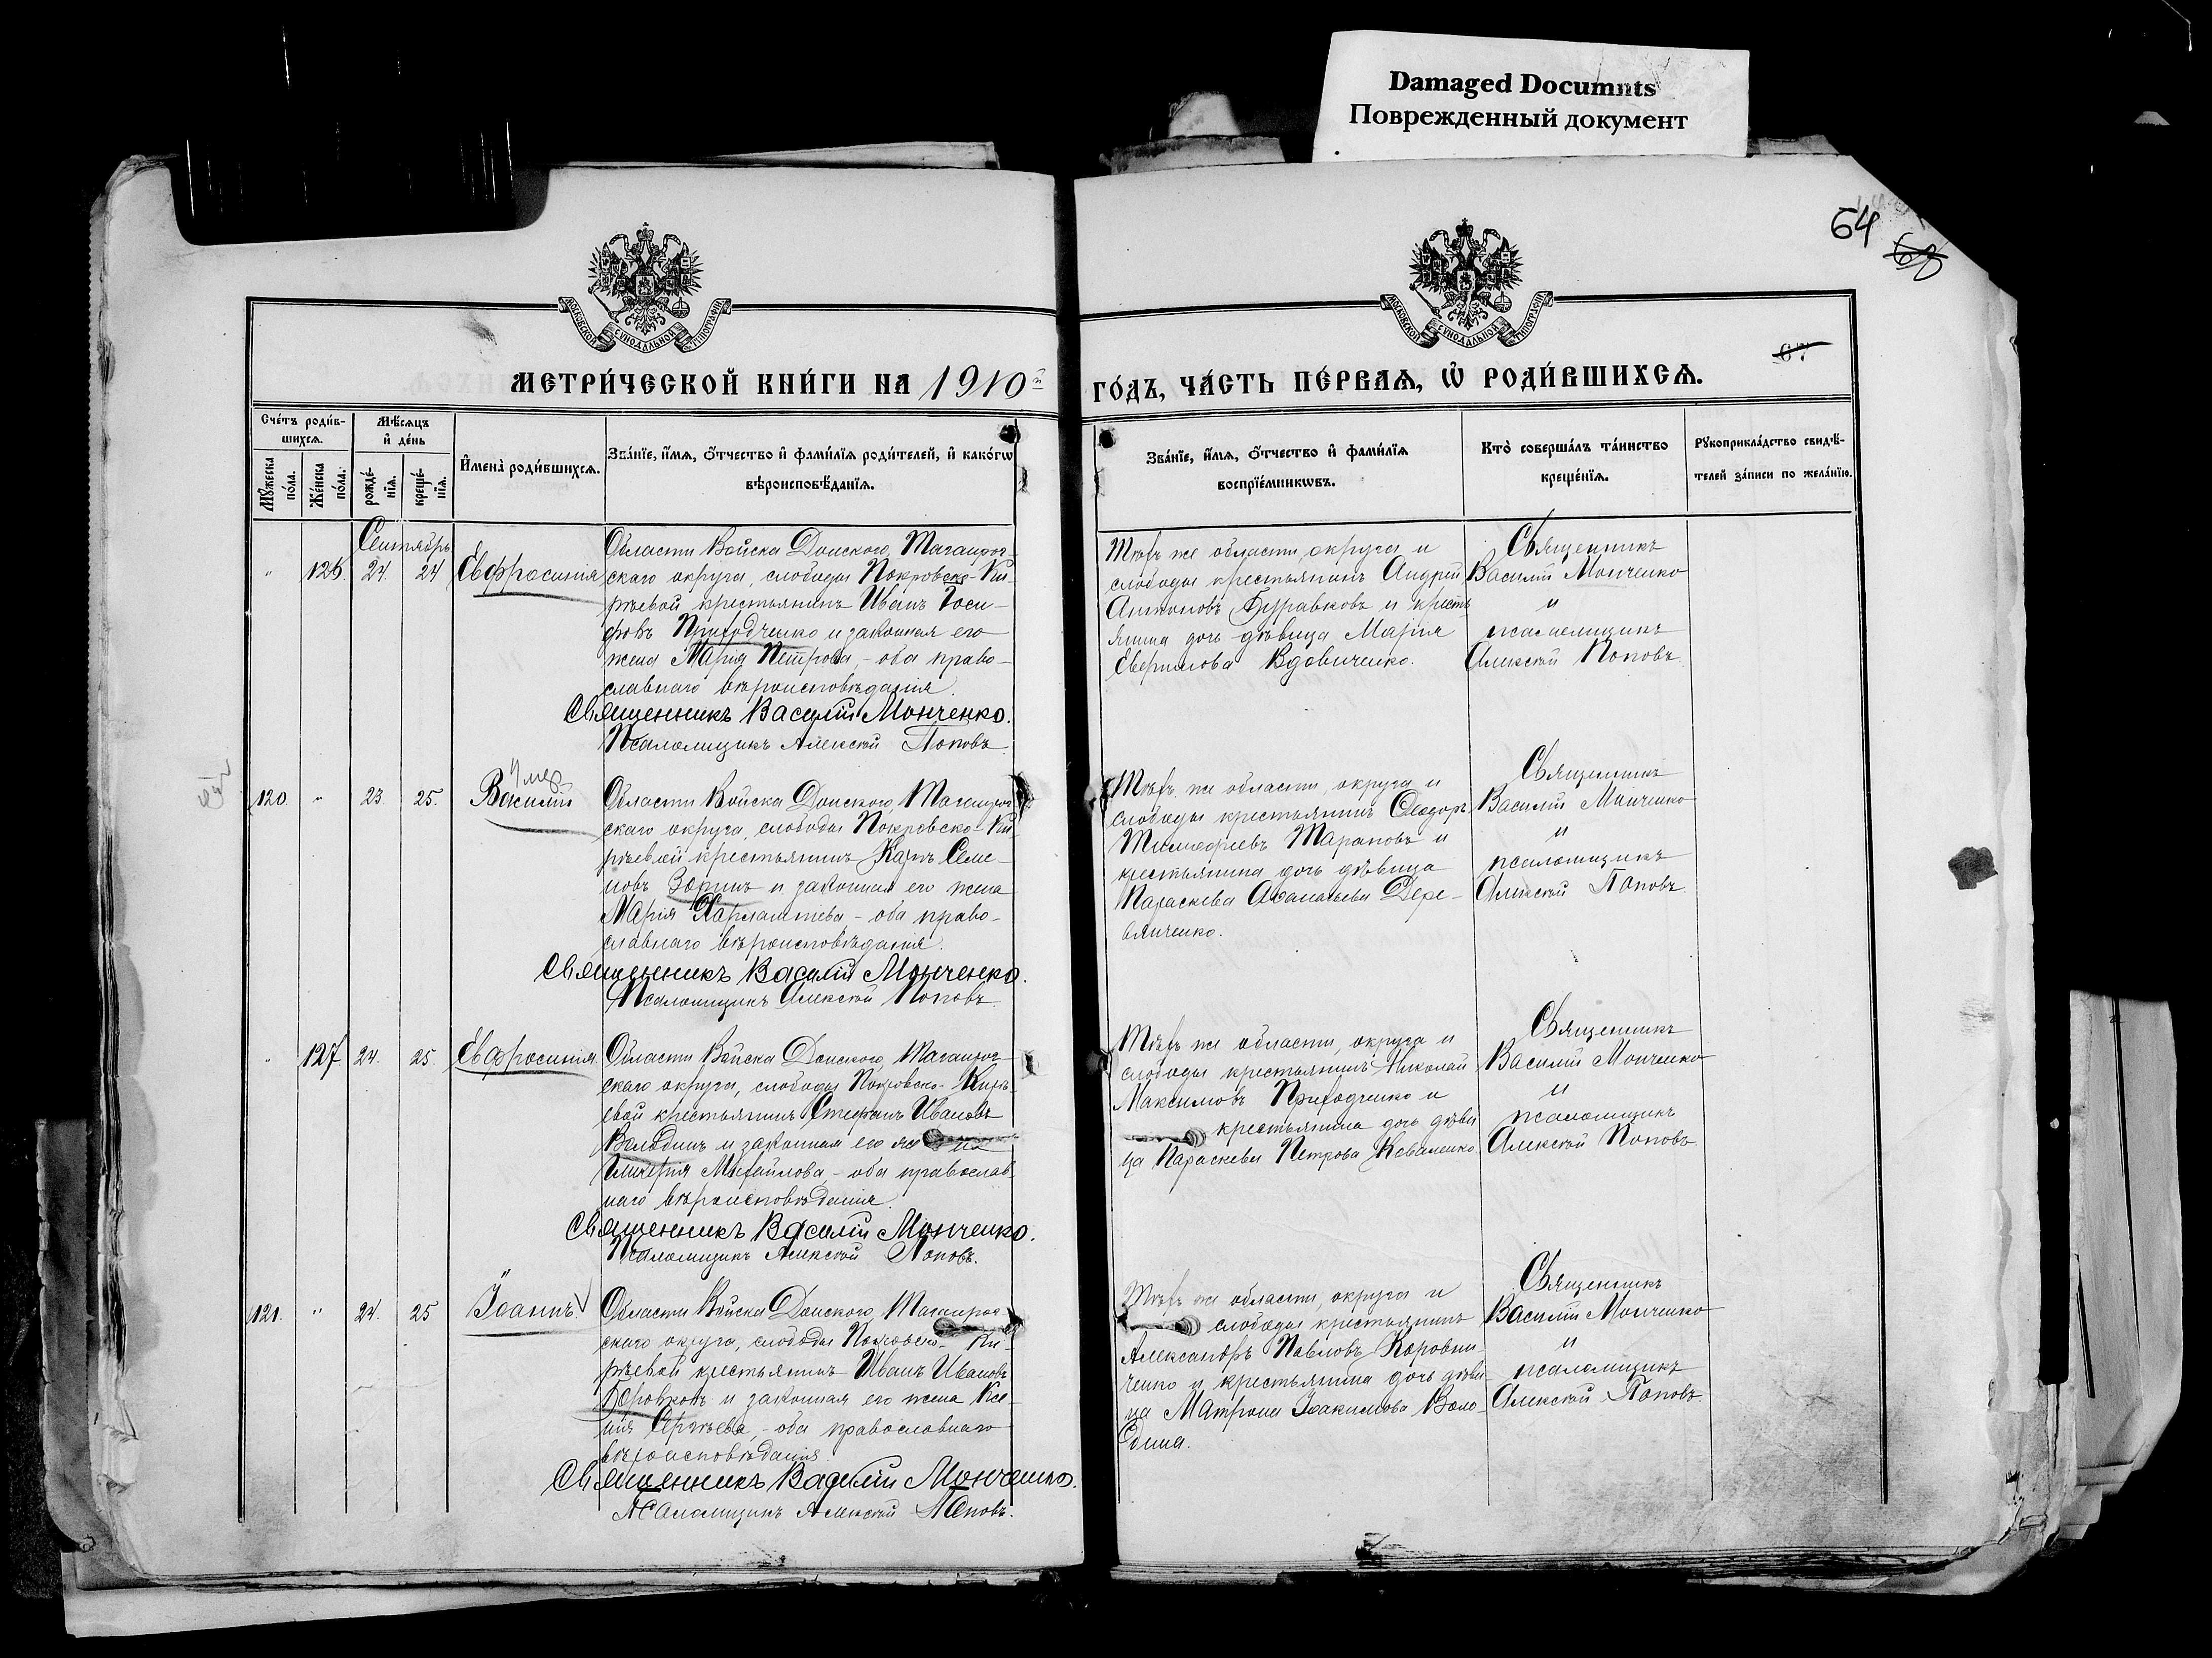 Damaged Documnts
Поврежденный документ
64
68
67
МОСКОВСКОЙ СУНОДАЛЬНОЙ ТИПОГРАФІИ
МОСКОВСКОЙ СУНОДАЛЬНОЙ ТИПОГРАФІИ
МЕТРИ́ЧЕСКОЙ КНИ́ГИ НА 1910й
ГО́ДЪ, ЧА́СТЬ ПЕ́РВАѦ, Ѡ҆ РОДИ́ВШИХСѦ.
Сче́тъ роди́в-
шихсѧ.
Мѣ́сѧцъ
и҆ де́нь
Мꙋ́жеска по́ла.
Же́нска по́ла.
рожде́-
нїѧ.
креще́-
нїѧ.
И҆мена̀ роди́вшихсѧ.
Зва́нїе, и҆́мѧ, ѻ҆́тчество и҆ фами́лїѧ роди́телей, и҆ како́гѡ
вѣроисповѣ́данїѧ.
Зва́нїе, и҆́мѧ, ѻ҆́тчество и҆ фами́лїѧ
воспрїе́мникѡвъ.
Кто̀ соверша́лъ та́инство
креще́нїѧ.
Рꙋкоприкла́дство свидѣ́-
телей за́писи по жела́нїю.
Сентябрь
" 126. 24. 24 Евфросинія
Области Войска Донского, Таганрог-
скаго округа, слободы Покровско-Ки-
рѣевой крестьянинъ Иванъ Іоси-
фовъ Приходченко и законная его
жена Марія Петрова, - оба право-
славнаго вѣроисповѣданія.
Священникъ Василій Монченко.
Псаломщикъ Алексѣй Поповъ.
Тѣхъ же области, округа и
слободы крестьянинъ Андрей
Антоновъ Буравковъ и кресть
янина дочь дѣвица Марія
Вдовиченко.
Священникъ
Василій Монченко
и
псаломщикъ
Алексѣй Поповъ.
120. " 23. 25. Василій
умер
Области Войска Донского, Таганрог-
скаго округа, слободы Покровско-Ки-
рѣевой крестьянинъ Карпъ Семе-
новъ Зоринъ и законная его жена
Марія Харлампіева - оба право-
славнаго вѣроисповѣданія.
Священникъ Василій Монченко.
Псаломщикъ Алексѣй Поповъ.
Тѣхъ же области, округа и
слободы крестьянинъ Ѳеодоръ
Тимофеевъ Тарановъ и
крестьянина дочь дѣвица
Параскева Аѳанасьева Дере-
вянченко.
Священникъ
Василій Монченко
и
псаломщикъ
Алексѣй Поповъ.
" 127. 24. 25. Евфросинія.
Области Войска Донского, Таганрог-
скаго округа, слободы Покровско-Кирѣ-
евой крестьянинъ Стефанъ Ивановъ
Володинъ и законная его жена
Гликерія Михайлова - оба православ-
наго вѣроисповѣданія.
Священникъ Василій Монченко.
Псаломщикъ Алексѣй Поповъ.
Тѣхъ же области, округа и
слободы крестьянинъ Николай
Максимовъ Приходченко и
крестьянина дочь дѣви
ца Параскева Петрова Коваленко.
Священникъ
Василій Монченко
и
псаломщикъ
Алексѣй Поповъ.
121. " 24. 25 Іоаннъ.
Области Войска Донского, Таганрог-
скаго округа, слободы Покровско-Ки-
рѣевой крестьянинъ Иванъ Ивановъ
Боровковъ и законная его жена Ксе-
нія Сергѣева, - оба православнаго
вѣроисповѣданія.
Священникъ Василій Монченко.
Псаломщикъ Алексѣй Поповъ.
Тѣхъ же области, округа и
слободы крестьянинъ
Александръ Павловъ Коровни-
ченко и крестьянина дочь дѣви-
ца Матрона Іоакимова Воло-
дина.
Священникъ
Василій Монченко
и
псаломщикъ
Алексѣй Поповъ.